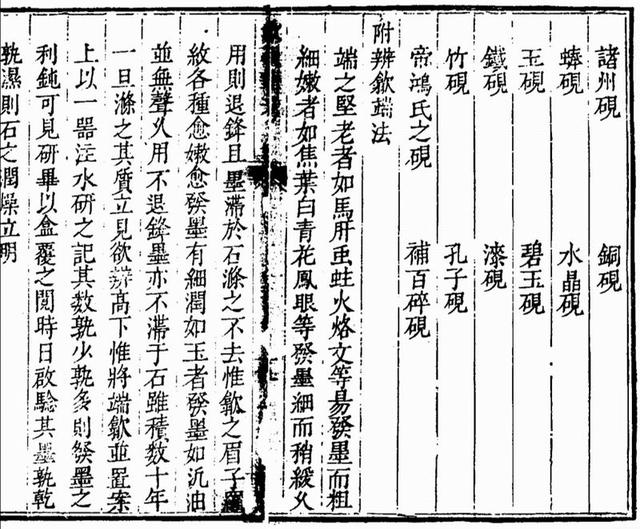 諸州硯　銅硯
蜯硯　水晶硯
玉硯　碧玉硯
鐵硯　漆硯
竹硯　孔子硯
帝鴻氏之硯　補百碎硯
附辨歙端法
端之堅老者如馬肝䖝蛀火烙文等易發墨而粗
細嫩者如焦葉白青花鳳眼等發墨細而稍緩久
用則退鋒且墨滯於石滌之不去惟歙之眉子
紋各種愈嫩愈發墨有細潤如玉者發墨如沉油
並無聲久用不退鋒墨亦不滯于石雖積數十年
一旦滌之其質立見欲辨高下惟將端歙並置案
上以一器注水研之記其數孰少孰多則發墨之
利鈍可見研畢以盒覆之閱時日啟驗其墨孰乾
孰濕則石之潤燥立明